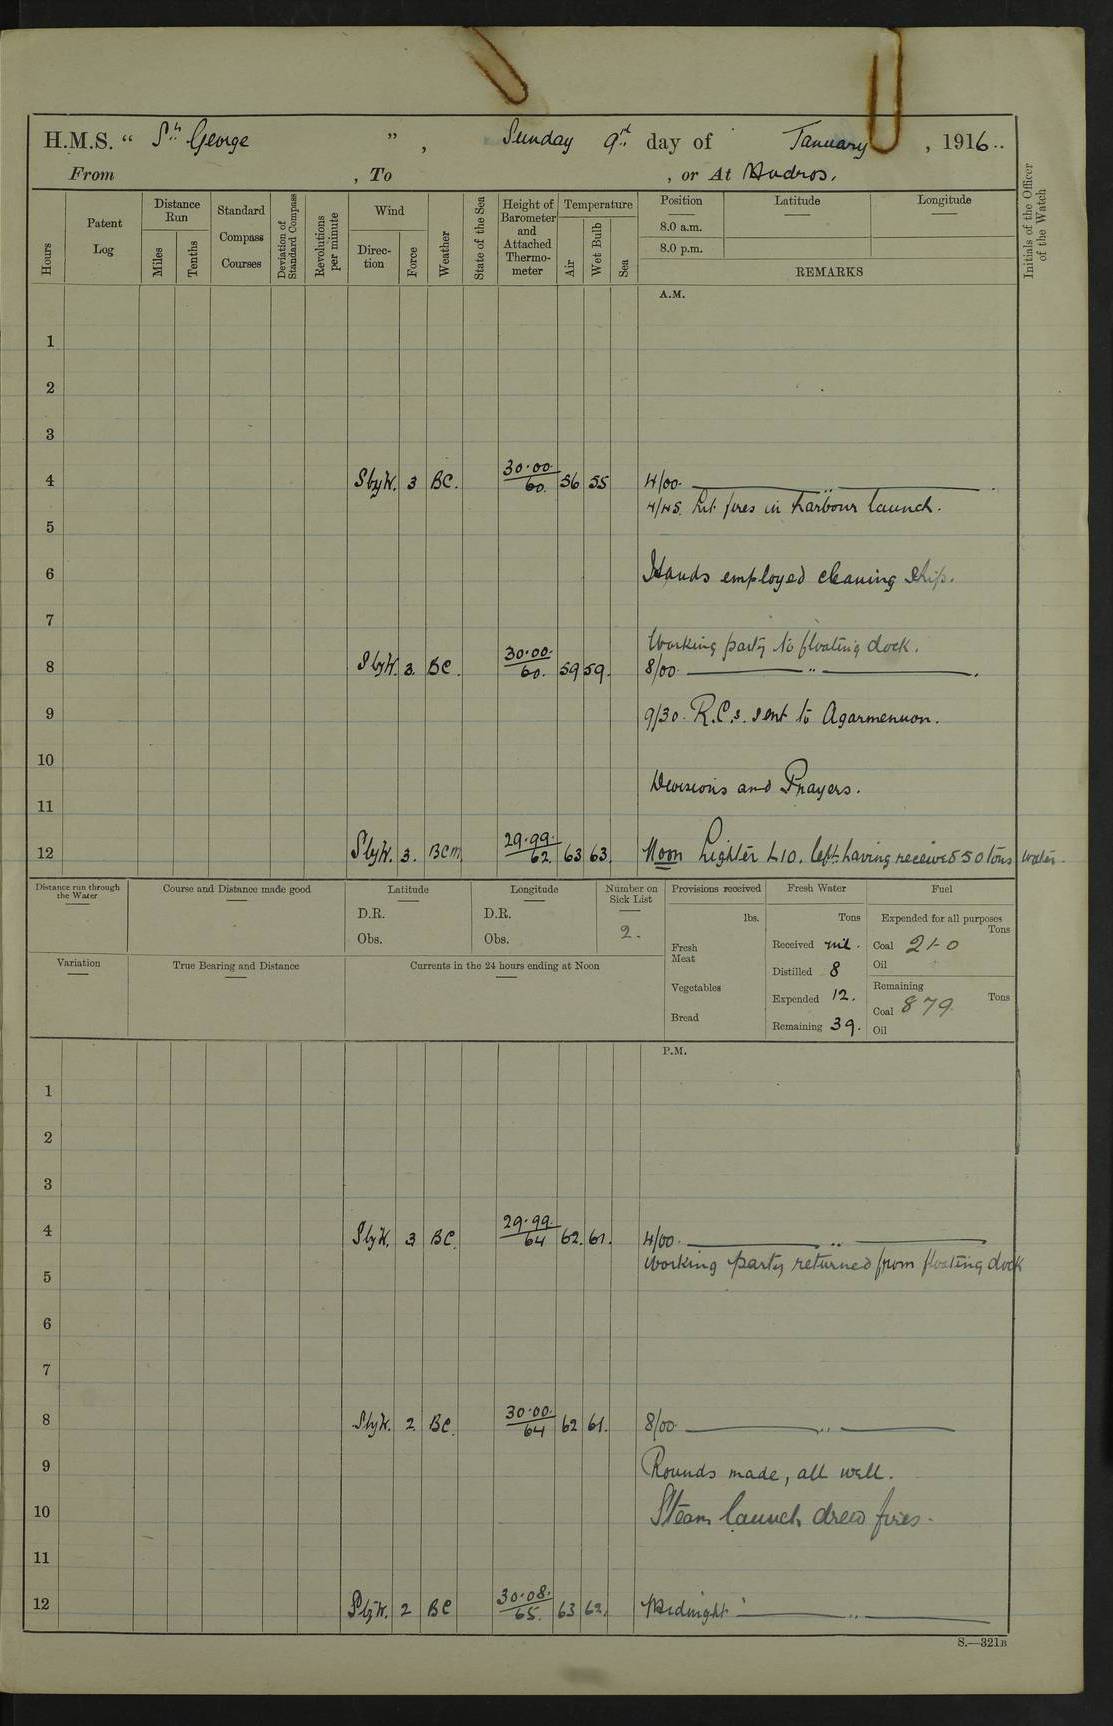 H.M.S. “ St George ”, Sunday 9th day of January, 1916..
From , To , or At Mudros.
Hours
Patent Log
Distance Run
Miles
Tenths
Standard Compass Courses
Deviation of Standard Compass
Revolutions per minute
Wind
Direction
Force
Weather
State of the Sea
Height of Barometer and Attached Thermometer
Temperature
Air
Wet Bulb
Sea
Position
8.0 a.m.
8.0 p.m.
Latitude
Longitude
REMARKS
Initials of the Officer of the Watch
A.M.
1
2
3
4 SbyW. 3 BC. 30.00. 60. 56 55 4/00. ——— " ———.
4/45. Lit fires in harbour launch.
5
6 Hands employed cleaning ship.
7
Working party to floating dock.
8 SbyW. 3. BC. 30.00. 60. 59 59. 8/00. ——— " ———.
9 9/30. R.C.s. sent to Agarmennon.
10
Divisions and Prayers.
11
12 SbyW. 3. BCM. 29.99. 62. 63 63. Noon Lighter L10. left having received 50 tons water.
Distance run through the Water
Course and Distance made good
Latitude
D.R.
Obs.
Longitude
D.R.
Obs.
Number on Sick List
2.
Provisions received
lbs.
Fresh Meat
Vegetables
Bread
Fresh Water
Tons
Received nil.
Distilled 8
Expended 12.
Remaining 39.
Fuel
Expended for all purposes
Tons
Coal 21-0
Oil
Remaining
Tons
Coal 879.
Oil
Variation
True Bearing and Distance
Currents in the 24 hours ending at Noon
P.M.
1
2
3
4 SbyW. 3 BC. 29.99. 64 62. 61. 4/00. ——— " ———
Working party returned from floating dock
5
6
7
8 SbyW. 2. BC. 30.00. 64 62 61. 8/00. ——— " ———
9 Rounds made, all well.
10 Steam launch drew fires.
11
12 SbyW. 2 BC 30.08. 65. 63 62. Midnight ——— " ———
S.—321B